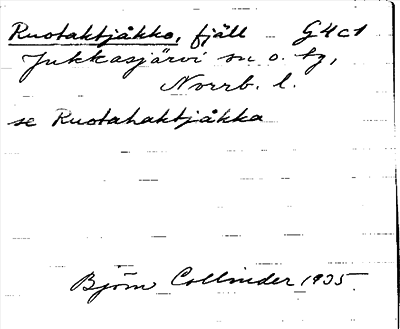 Ruotaktjåkko, fjäll G4c1
Jukkasjärvi sn o. tg,
Norrb. l.
se Ruotahaktjåkka
Björn Collinder 1935.